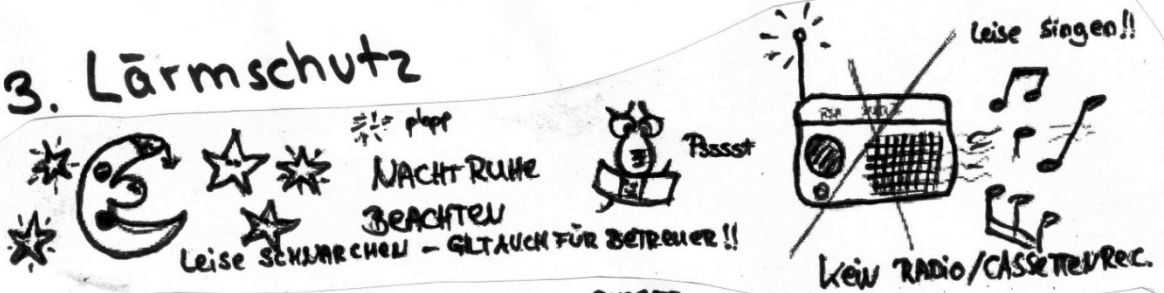 3. Lärmschutz
plopp
NACHTRUHE
BEACHTEN
Leise SCHNARCHEN – GILT AUCH FÜR BETREUER!!
Psssst
Leise Singen!!
Kein RADIO/CASSETTENREC.